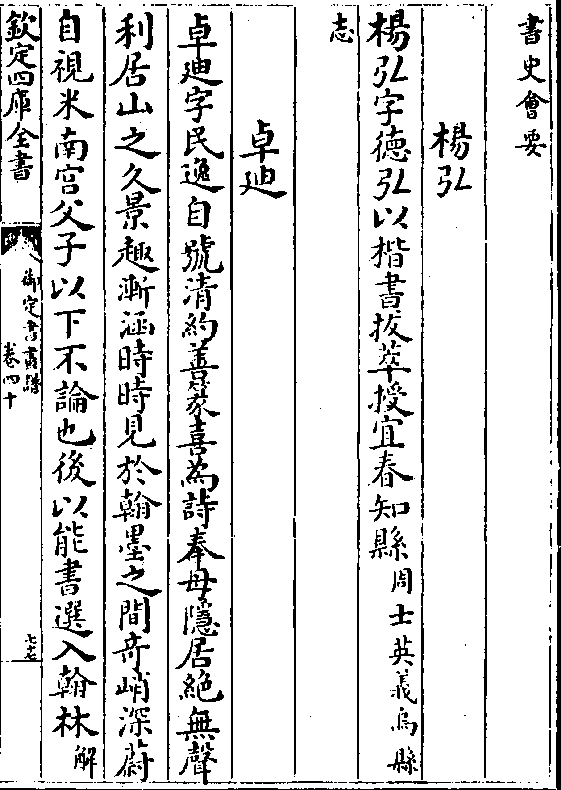 書史會要
楊弘
楊弘字德弘以楷書拔萃授宜春知縣周士英義烏縣
志
卓廸
卓廸字民逸自號清約善篆喜為詩奉母隱居絶無聲
利居山之久景趣漸涵時時見於翰墨之間奇峭深蔚
自視米南宫父子以下不論也後以能書選入翰林解
欽定四庫全書
御定書畫譜
卷四十
七十七